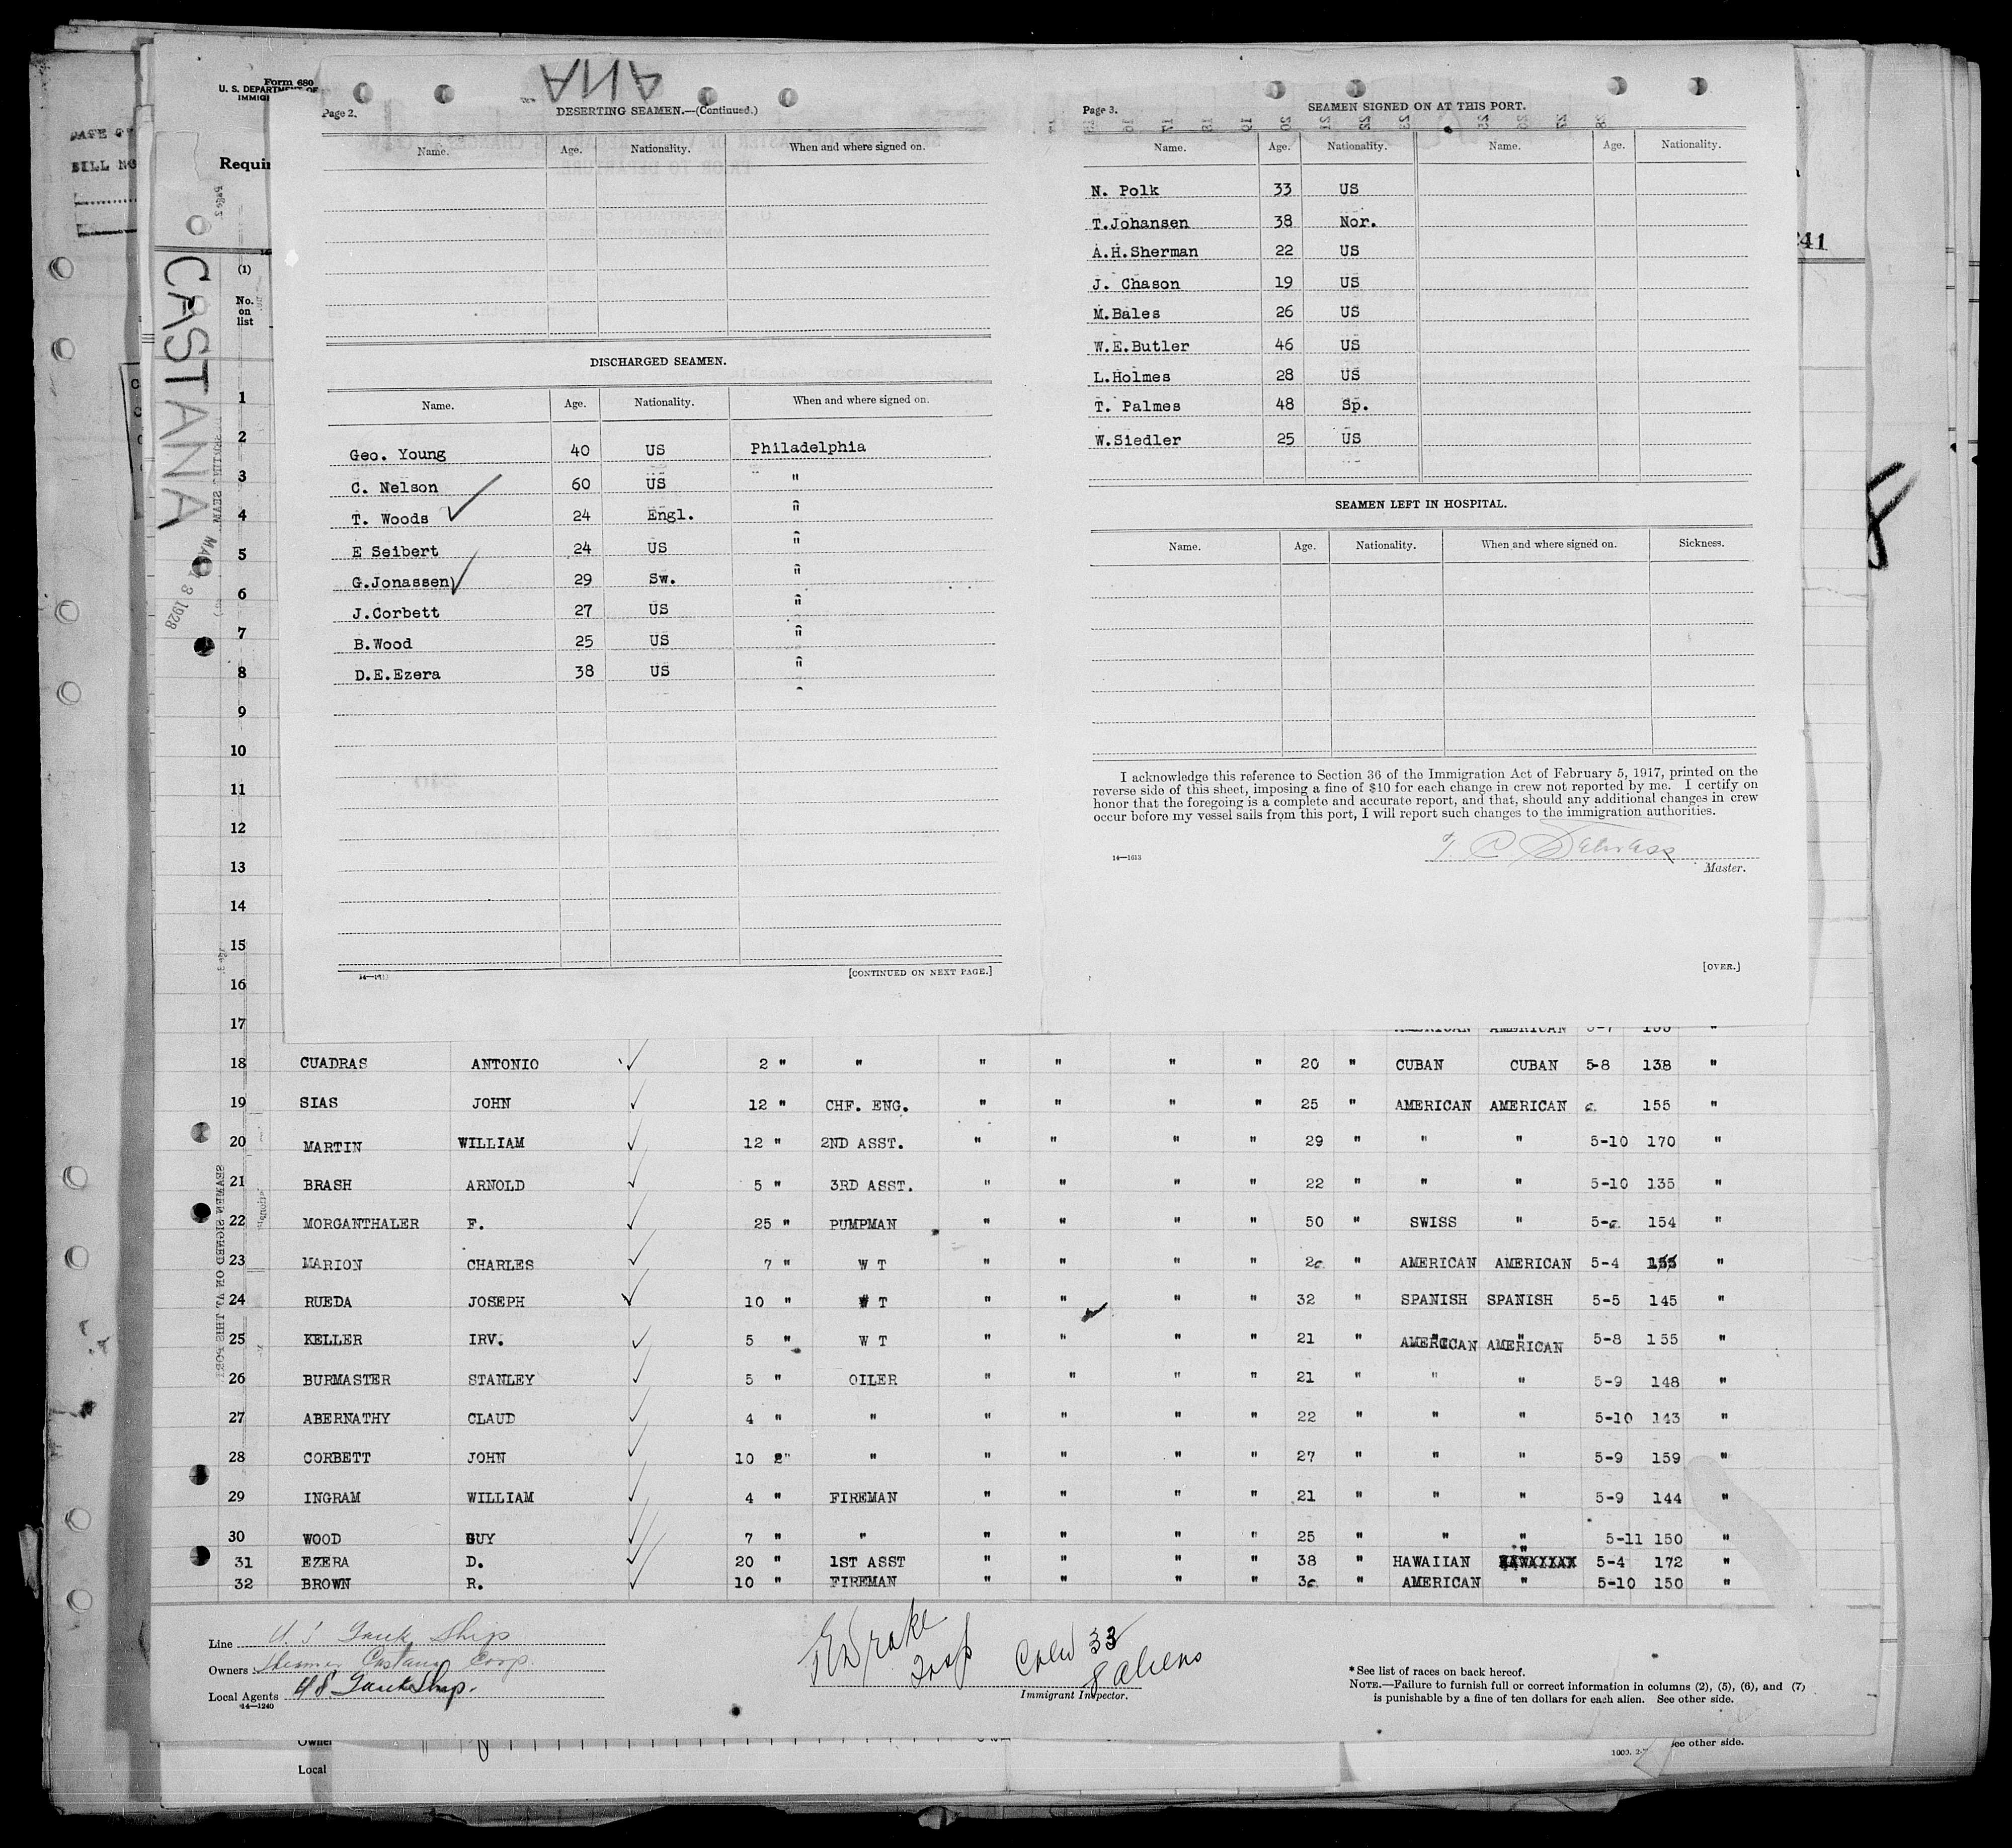 Form 680
U. S. DEPARTMENT OF
IMMIGI
DATE OF
BILL NO
Requir
(1)
No.
on
list
CASTANA
3 1928
241
Page 2.
DESERTING SEAMEN.—(Continued.)
Name. Age. Nationality. When and where signed on.
DISCHARGED SEAMEN.
Name. Age. Nationality. When and where signed on.
Geo. Young 40 US Philadelphia
C. Nelson 60 US "
T. Woods 24 Engl. "
E Seibert 24 US "
G.Jonassen 29 Sw. "
J.Corbett 27 US "
B.Wood 25 US "
D.E.Ezera 38 US "
[CONTINUED ON NEXT PAGE.]
Page 3.
SEAMEN SIGNED ON AT THIS PORT.
Name. Age. Nationality. Name. Age. Nationality.
N. Polk 33 US
T.Johansen 38 Nor.
A.H.Sherman 22 US
J. Chason 19 US
M.Bales 26 US
W.E.Butler 46 US
L.Holmes 28 US
T. Palmes 48 Sp.
W.Siedler 25 US
SEAMEN LEFT IN HOSPITAL.
Name. Age. Nationality. When and where signed on. Sickness.
I acknowledge this reference to Section 36 of the Immigration Act of February 5, 1917, printed on the
reverse side of this sheet, imposing a fine of $10 for each change in crew not reported by me. I certify on
honor that the foregoing is a complete and accurate report, and that, should any additional changes in crew
occur before my vessel sails from this port, I will report such changes to the immigration authorities.
14—1613
Master.
[OVER.]
1
2
3
4
5
6
7
8
9
10
11
12
13
14
15
16
17 AMERICAN AMERICAN 5-7 155 "
18 CUADRAS ANTONIO 2 " " " " " " 20 " CUBAN CUBAN 5-8 138 "
19 SIAS JOHN 12 " CHF. ENG. " " " " 25 " AMERICAN AMERICAN 155 "
20 MARTIN WILLIAM 12 " 2ND ASST. " " " " 29 " " " 5-10 170 "
21 BRASH ARNOLD 5 " 3RD ASST. " " " " 22 " " " 5-10 135 "
22 MORGANTHALER F. 25 " PUMPMAN " " " " 50 " SWISS " 154 "
23 MARION CHARLES 7 " W T " " " " " AMERICAN AMERICAN 5-4 "
24 RUEDA JOSEPH 10 " W T " " " " 32 " SPANISH SPANISH 5-5 145 "
25 KELLER IRV. 5 " W T " " " " 21 " AMERICAN AMERICAN 5-8 155 "
26 BURMASTER STANLEY 5 " OILER " " " " 21 " " " 5-9 148 "
27 ABERNATHY CLAUD 4 " " " " " " 22 " " " 5-10 143 "
28 CORBETT JOHN 10 " " " " " " 27 " " " 5-9 159 "
29 INGRAM WILLIAM 4 " FIREMAN " " " " 21 " " " 5-9 144 "
30 WOOD GUY 7 " " " " " " 25 " " " 5-11 150 "
31 EZERA D. 20 " 1ST ASST " " " " 38 " HAWAIIAN " 5-4 172 "
32 BROWN R. 10 " FIREMAN " " " " " AMERICAN " 5-10 150 "
Line U. S Tank Ship
Owners Steamer Castana Corp.
Local Agents U S Tank Ship.
14—1240
Drake
Insp
Crew 33
8 aliens
Immigrant Inspector.
*See list of races on back hereof.
NOTE.—Failure to furnish full or correct information in columns (2), (5), (6), and (7)
is punishable by a fine of ten dollars for each alien. See other side.
Owner
Local
See other side.